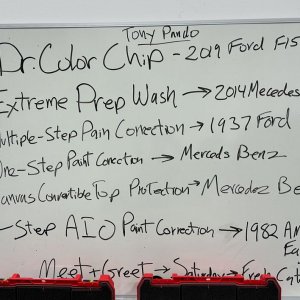 Tony Pando
Dr. Color Chip - 2019 Ford F15
Extreme Prep Wash → 2014 Mecedes
Multiple-Step Pain Correction → 1937 Ford
One-Step Paint Correction → Merceds Benz
Canvas Convertible Top Protection → Mercedez Be
-Step AIO Paint Correction → 1982 Am
Meet + Greet → Saturday → Fresh